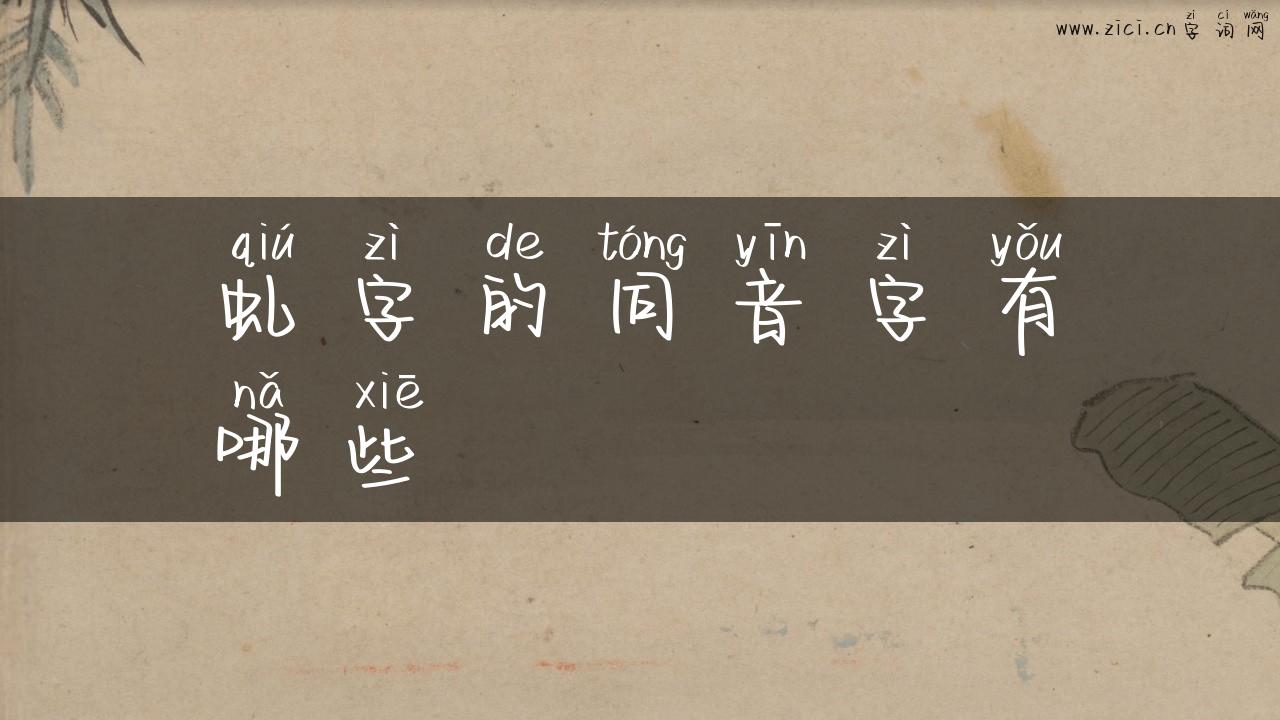 zì cí wǎng
www.zici.cn 字 词 网
qiú zì de tóng yīn zì yǒu
虬 字 的 同 音 字 有
nǎ xiē
哪 些